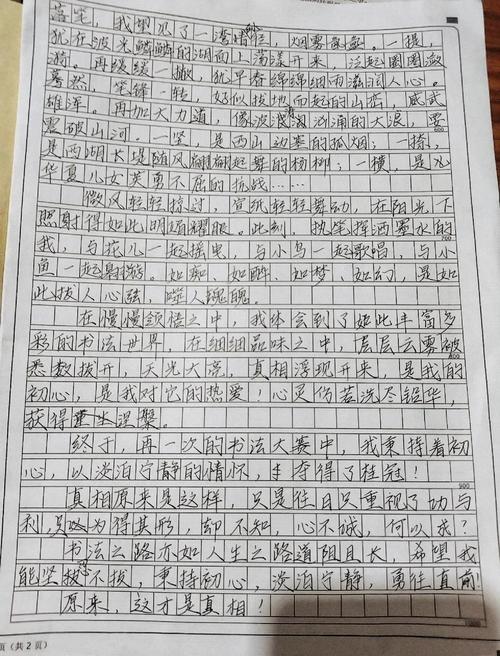 落笔，我望见了一湾暗红，烟雾氤氲。一提，
犹在波光粼粼的湖面上荡漾开来，泛起圈圈涟
漪。再缓缓一撇，犹早春绵绵细雨滋润人心。
蓦然，笔锋一转，好似拔地而起的山峦，威武
雄浑。再加大力道，像波浪汹涌的大浪，要
600
震破山河。一竖，是西山边塞的孤烟；一捺，
是西湖长堤随风翩翩起舞的杨柳；一横，是
华夏儿女英勇不屈的抗战……
微风轻轻掠过，宣纸轻轻舞动，在阳光下
照射得如此明清耀眼。此刻，执笔挥洒墨水的
700
我，与花儿一起摇曳，与小鸟一起歌唱，与小
鱼一起翱游。如痴、如醉、如梦、如幻，是如
此拨人心弦，噬人魂魄。
在慢慢领悟之中，我体会到了如此丰富多
彩的书法世界，在细细品味之中，层层云雾被
800
悉数拨开，天光大亮，真相浮现开来，是我的
初心，是我对它的热爱！心灵仿若洗尽铅华，
获得重生涅槃。
终于，再一次的书法大赛中，我秉持着初
心，以淡泊宁静的情怀，夺得了桂冠！
900
真相原来是这样，只是往日只重视了功与
利，以为得其形，却不知，心不诚，何以成？
书法之路亦如人生之路道阻且长，希望我
能坚拔不拔，秉持初心，淡泊宁静，勇往直前！
原来，这才是真相！
页（共2页）